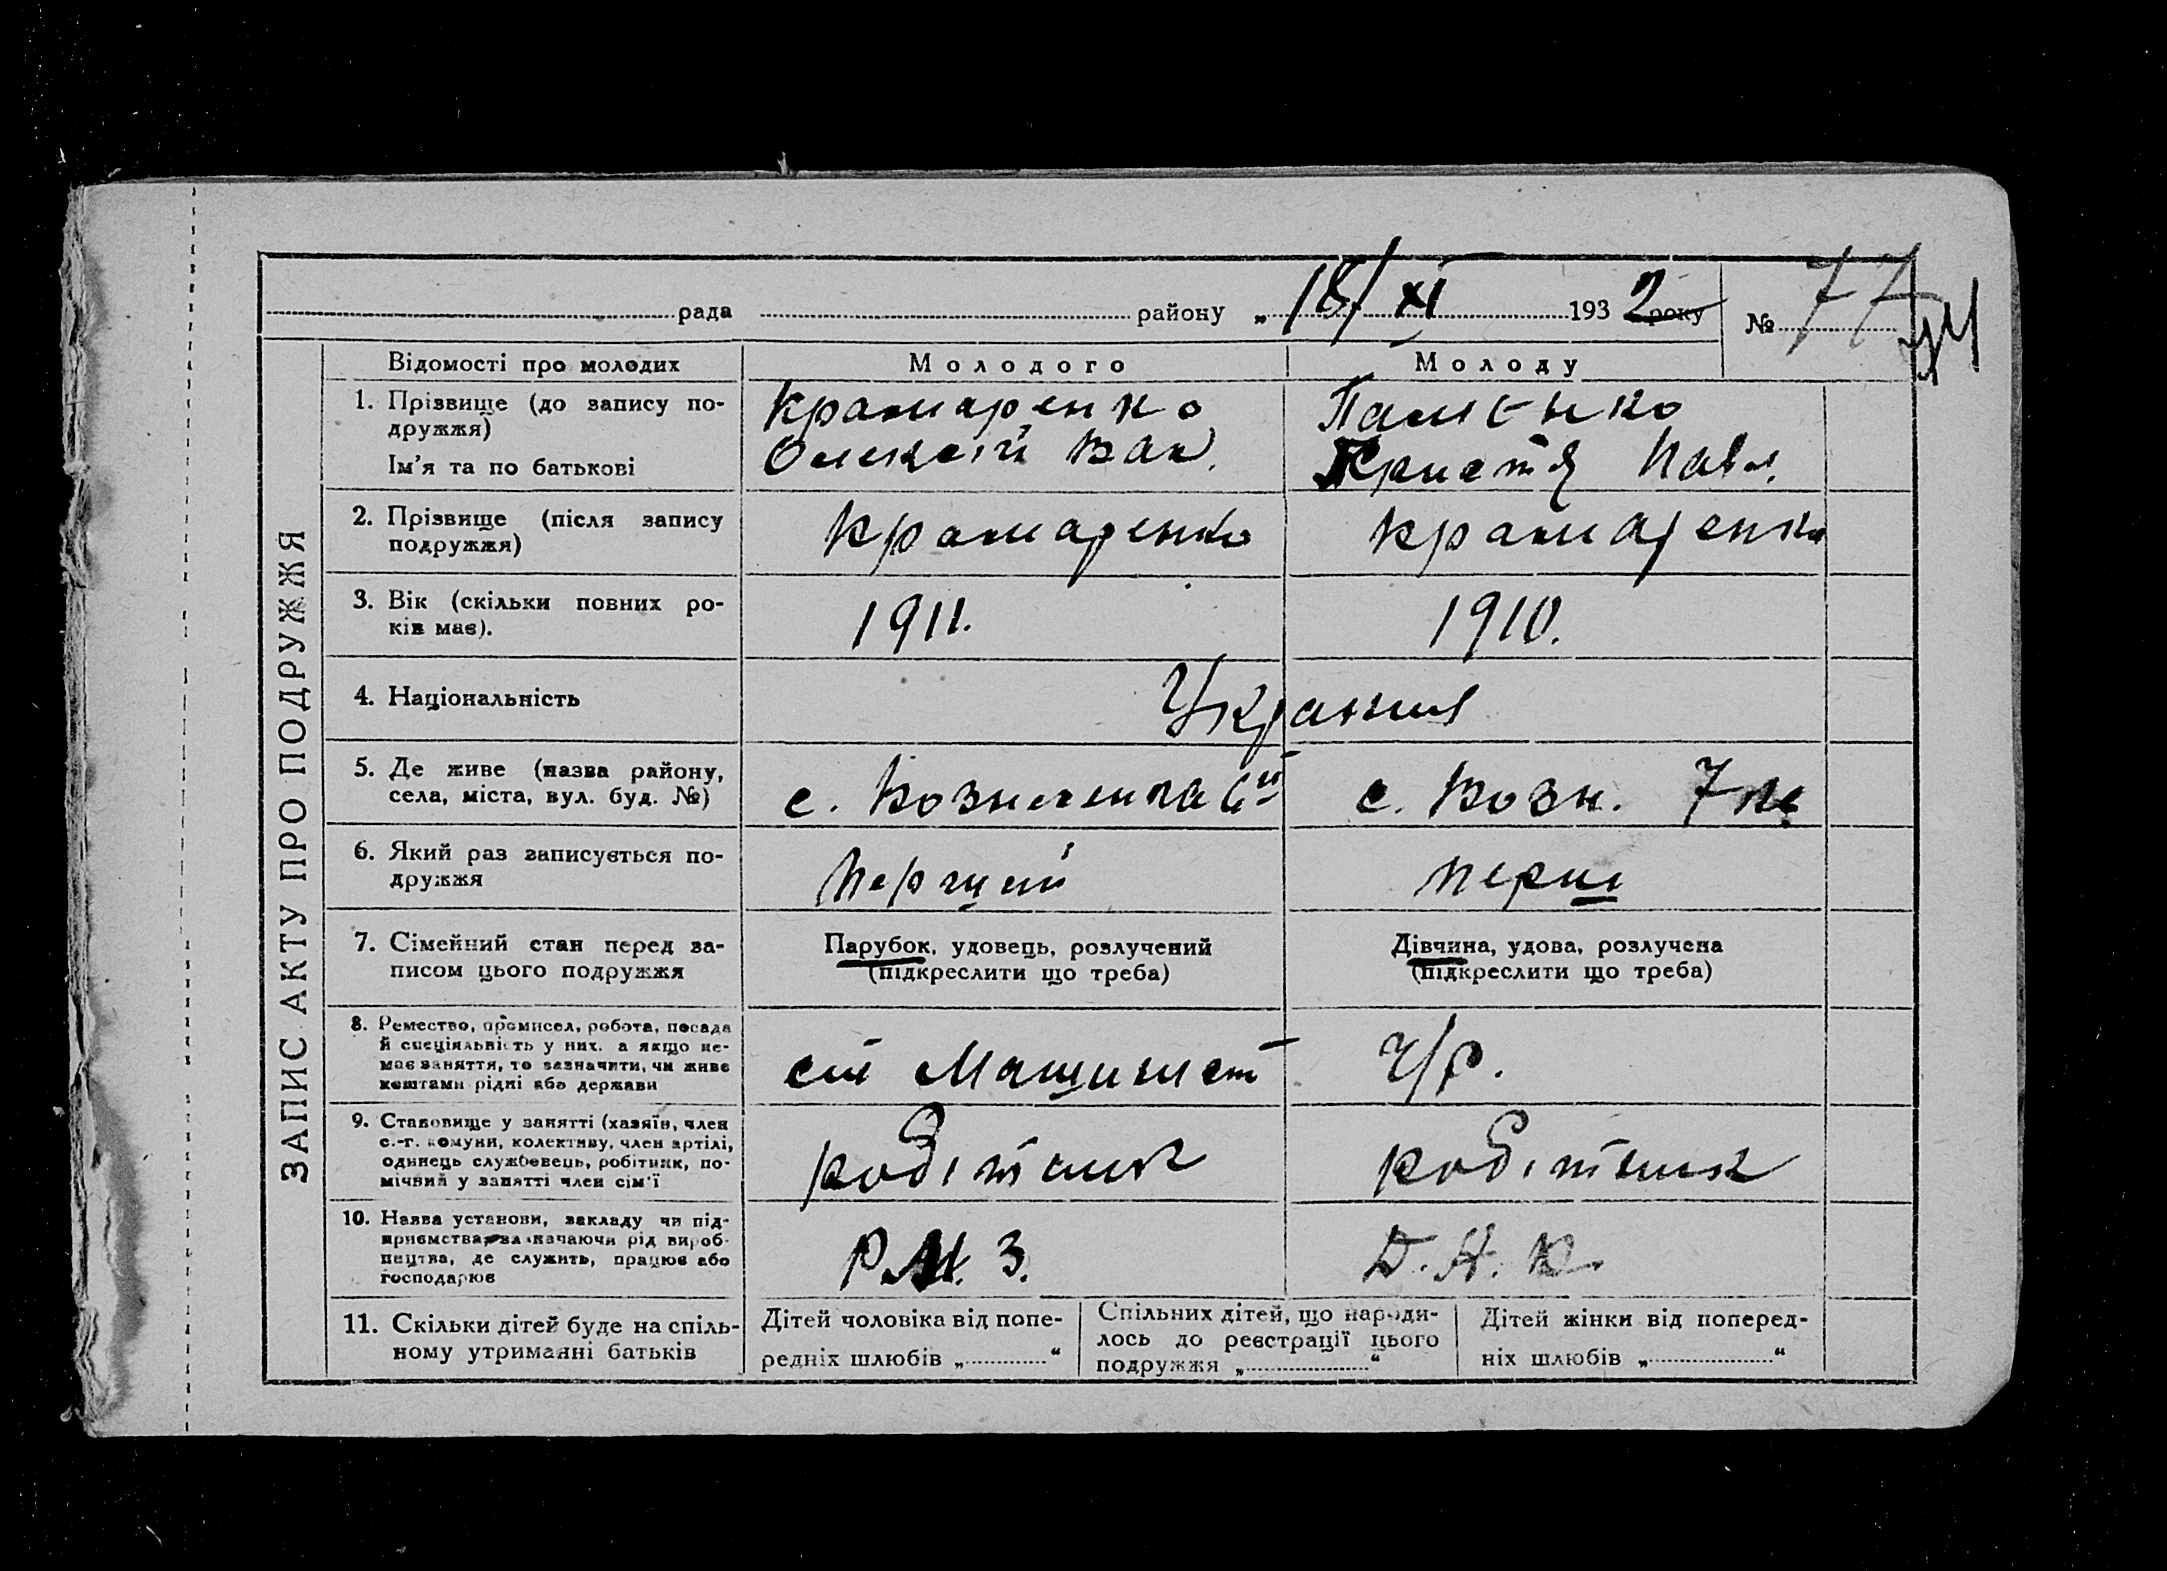 рада району „ 18/XI 1932 року № 77
Відомості про молодих Молодого Молоду
1. Прізвище (до запису по-
дружжя)
Крамаренко
Ім'я та по батькові
Олексій Вас. Христя Павл.
2. Прізвище (після запису
подружжя)
Крамаренко Крамаренко
3. Вік (скільки повних ро-
ків має).
1911. 1910.
4. Національність
5. Де живе (назва району,
села, міста, вул. буд. №)
с. с. Возн. 7
6. Який раз записується по-
дружжя
перший перш
7. Сімейний стан перед за-
писом цього подружжя
Парубок, удовець, розлучений
(підкреслити що треба)
Дівчина, удова, розлучена
(підкреслити що треба)
8. Ремество, промисел, робота, посада
й спеціяльність у них, а якщо не-
має заняття, то зазначити, чи живе
коштами рідні або держави
Машинист Ч/Р.
9. Становище у занятті (хазяїн, член
с.-г. комуни, колективу, член артілі,
одинець службовець, робітник, по-
мічний у занятті член сім'ї
робітник робітник
10. Назва установи, закладу чи під-
приємства, зазначаючи рід вироб-
ництва, де служить, працює або
господарює
Р.М.З. Д.А.К.
11. Скільки дітей буде на спіль-
ному утриманні батьків
Дітей чоловіка від попе-
редніх шлюбів „ “
Спільних дітей, що народи-
лось до реєстрації цього
подружжя „ “
Дітей жінки від поперед-
ніх шлюбів „ “
ЗАПИС АКТУ ПРО ПОДРУЖЖЯ